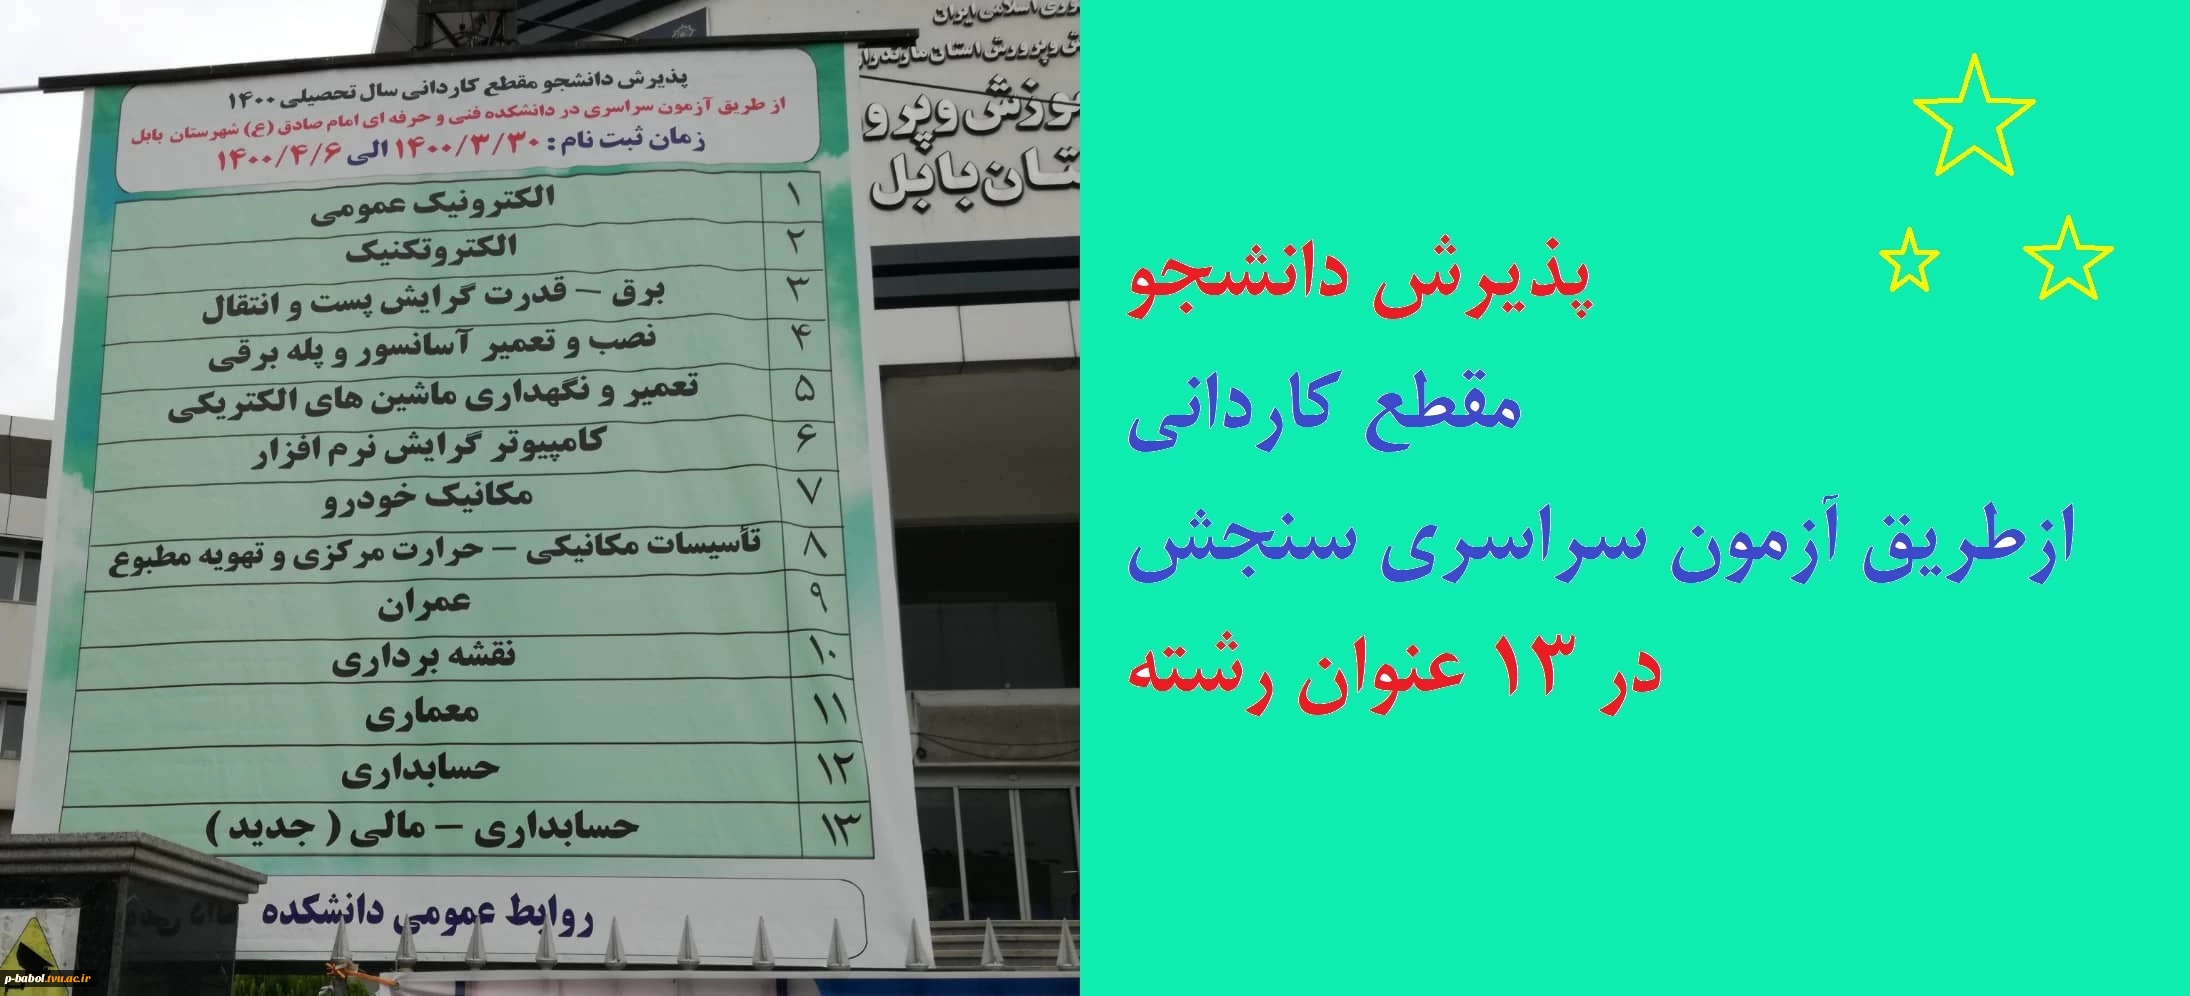 پذیرش دانشجو مقطع کاردانی سال تحصیلی ۱۴۰۰
از طریق آزمون سراسری در دانشکده فنی و حرفه ای امام صادق (ع) شهرستان بابل
زمان ثبت نام : ۱۴۰۰/۳/۳۰ الی ۱۴۰۰/۴/۶
۱ الکترونیک عمومی
۲ الکتروتکنیک
۳ برق – قدرت گرایش پست و انتقال
۴ نصب و تعمیر آسانسور و پله برقی
۵ تعمیر و نگهداری ماشین های الکتریکی
۶ کامپیوتر گرایش نرم افزار
۷ مکانیک خودرو
۸ تأسیسات مکانیکی – حرارت مرکزی و تهویه مطبوع
۹ عمران
۱۰ نقشه برداری
۱۱ معماری
۱۲ حسابداری
۱۳ حسابداری – مالی ( جدید )
روابط عمومی دانشکده
اسلامی ایران
وپرورش استان
بابل
پذیرش دانشجو
مقطع کاردانی
ازطریق آزمون سراسری سنجش
در ۱۳ عنوان رشته
p-babol.tvu.ac.ir